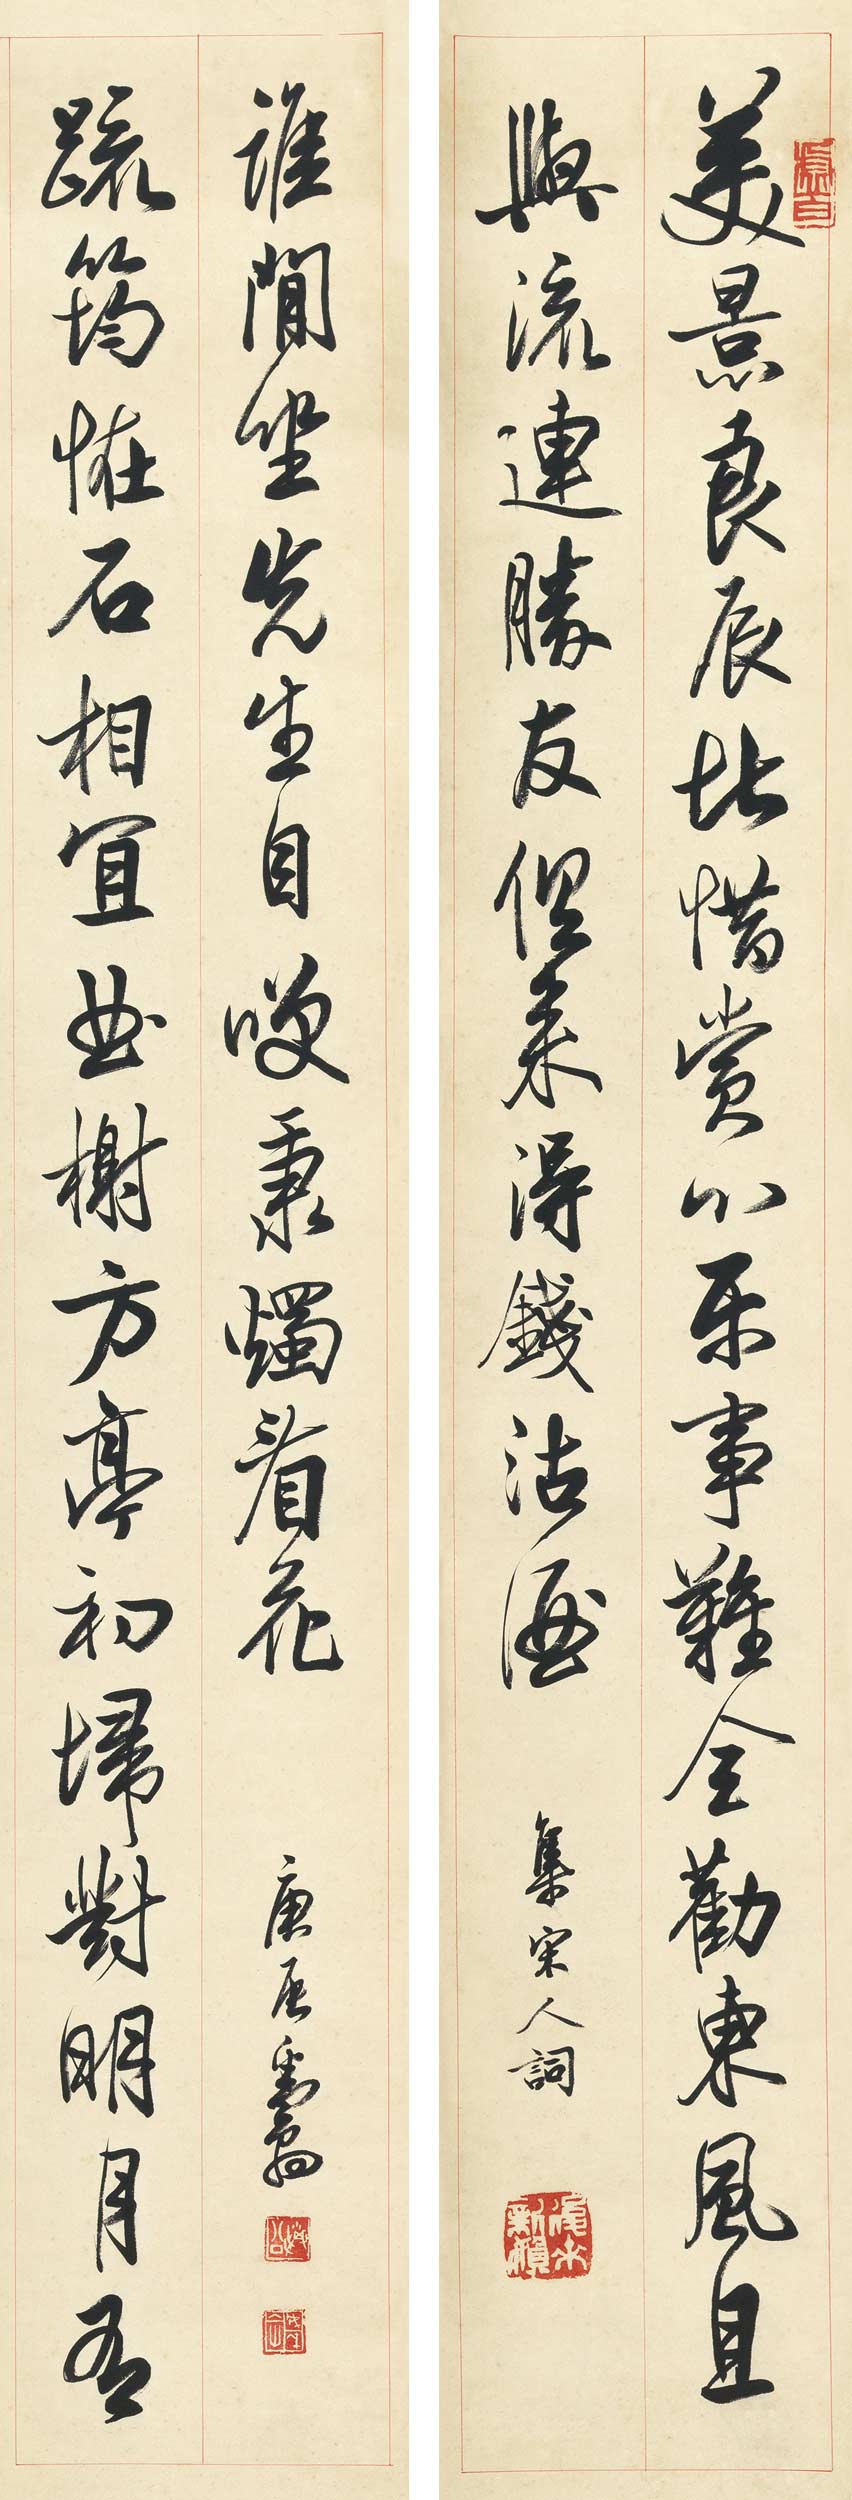 美景良辰此惜賞心樂事難全勸東風且
與流連勝友但來得錢沽酒
集宋人詞
疏筠怪石相宜曲榭方亭初埽對明月有
誰閒坐先生自笑秉燭看花
庚辰